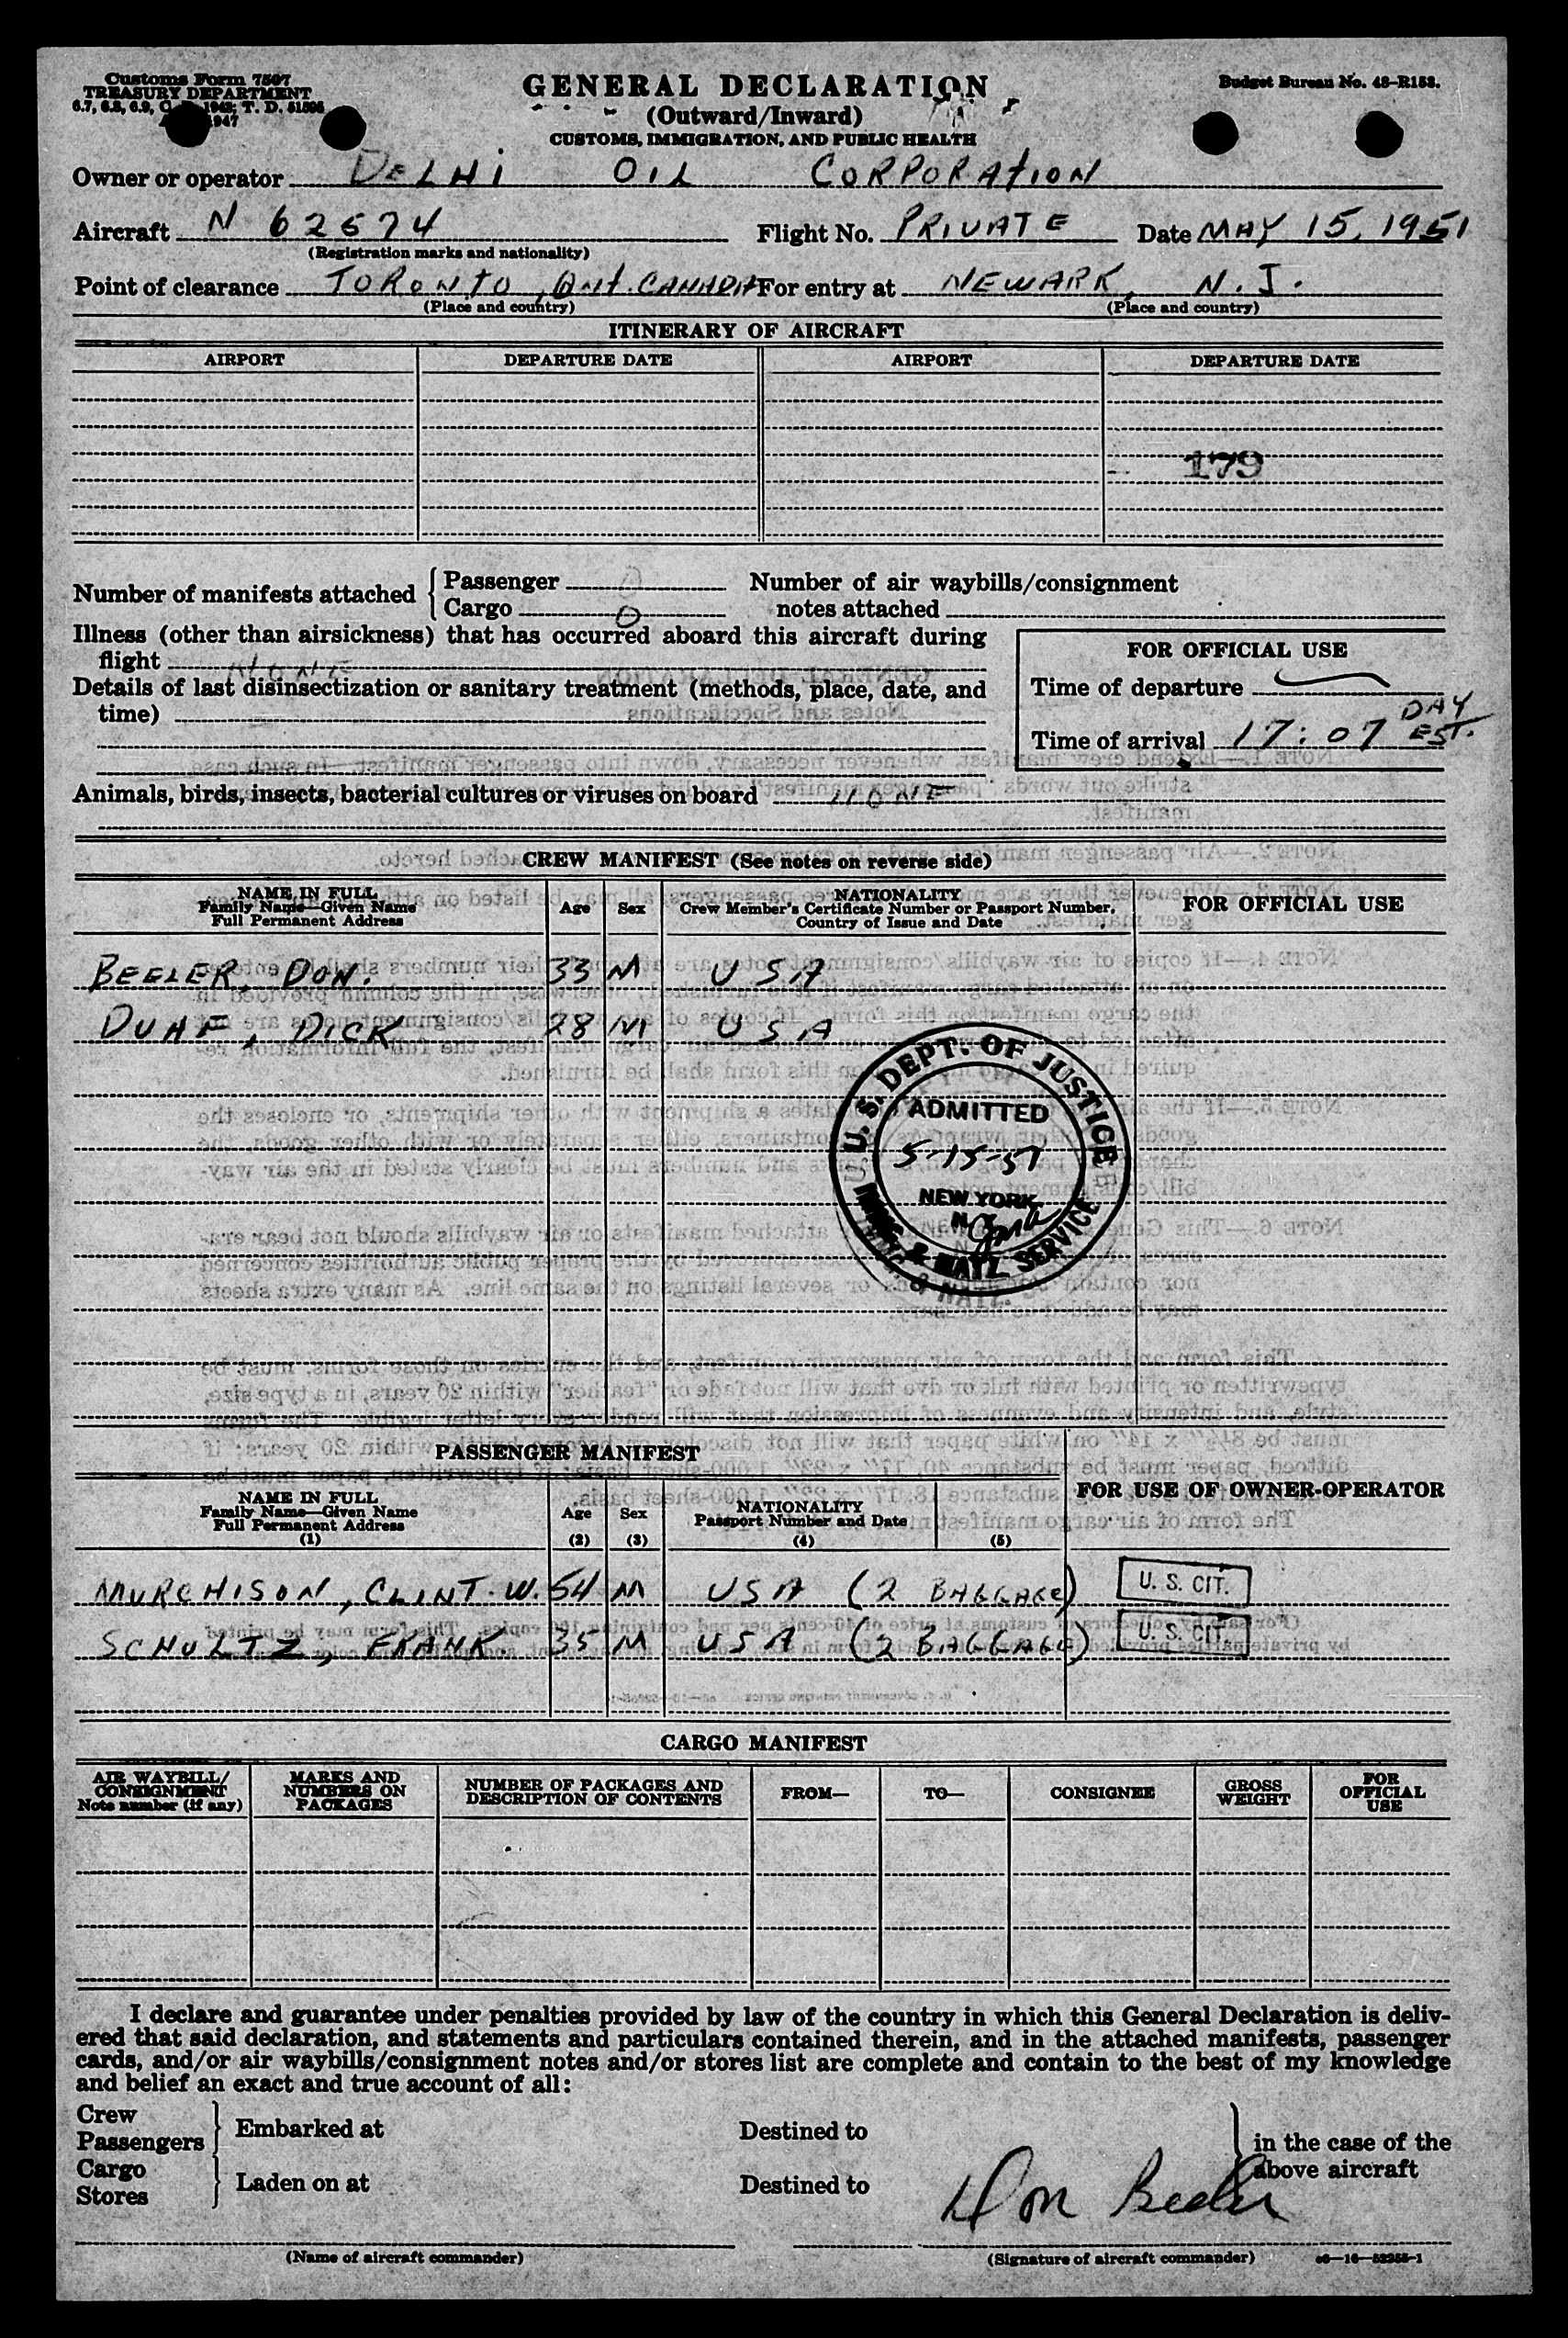 Customs Form 7507
TREASURY DEPARTMENT
6.7, 6.8, 6.9, 1942; T. D. 51595
1947
GENERAL DECLARATION
(Outward/Inward)
CUSTOMS, IMMIGRATION, AND PUBLIC HEALTH
Budget Bureau No. 48-R153.
Owner or operator DELHI OIL CORPORATION
Aircraft N 62574 Flight No. PRIVATE Date MAY 15, 1951
(Registration marks and nationality)
Point of clearance TORONTO, Ont. CANADA For entry at NEWARK, N.J.
(Place and country) (Place and country)
ITINERARY OF AIRCRAFT
AIRPORT DEPARTURE DATE AIRPORT DEPARTURE DATE
179
Number of manifests attached { Passenger 0 Number of air waybills/consignment
Cargo 0 notes attached
Illness (other than airsickness) that has occurred aboard this aircraft during
flight NONE
Details of last disinsectization or sanitary treatment (methods, place, date, and
time)
FOR OFFICIAL USE
Time of departure
Time of arrival 17:07 DAY EST.
Animals, birds, insects, bacterial cultures or viruses on board NONE
CREW MANIFEST (See notes on reverse side)
NAME IN FULL
Family Name—Given Name
Full Permanent Address
Age Sex
NATIONALITY
Crew Member's Certificate Number or Passport Number,
Country of Issue and Date
FOR OFFICIAL USE
BEELER, DON. 33 M USA
DUHE, DICK 28 M USA
U. S. DEPT. OF JUSTICE
ADMITTED
5-15-51
NEW YORK,
N.Y.
IMMIG. & NAT'L SERVICE
PASSENGER MANIFEST
NAME IN FULL
Family Name—Given Name
Full Permanent Address
(1)
Age (2) Sex (3)
NATIONALITY
Passport Number and Date
(4) (5)
FOR USE OF OWNER-OPERATOR
MURCHISON, CLINT. W. 54 M USA (2 BAGGAGE) U. S. CIT.
SCHULTZ, FRANK. 35 M USA (2 BAGGAGE) U. S. CIT.
CARGO MANIFEST
AIR WAYBILL/
CONSIGNMENT
Note number (if any)
MARKS AND
NUMBERS ON
PACKAGES
NUMBER OF PACKAGES AND
DESCRIPTION OF CONTENTS
FROM— TO— CONSIGNEE
GROSS
WEIGHT
FOR
OFFICIAL
USE
I declare and guarantee under penalties provided by law of the country in which this General Declaration is deliv-
ered that said declaration, and statements and particulars contained therein, and in the attached manifests, passenger
cards, and/or air waybills/consignment notes and/or stores list are complete and contain to the best of my knowledge
and belief an exact and true account of all:
Crew
Passengers } Embarked at Destined to } in the case of the
Cargo above aircraft
Stores } Laden on at Destined to
Don Beeler
(Name of aircraft commander) (Signature of aircraft commander) 16—53255-1